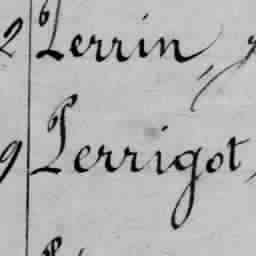 2 Perrin,
9 Perrigot,